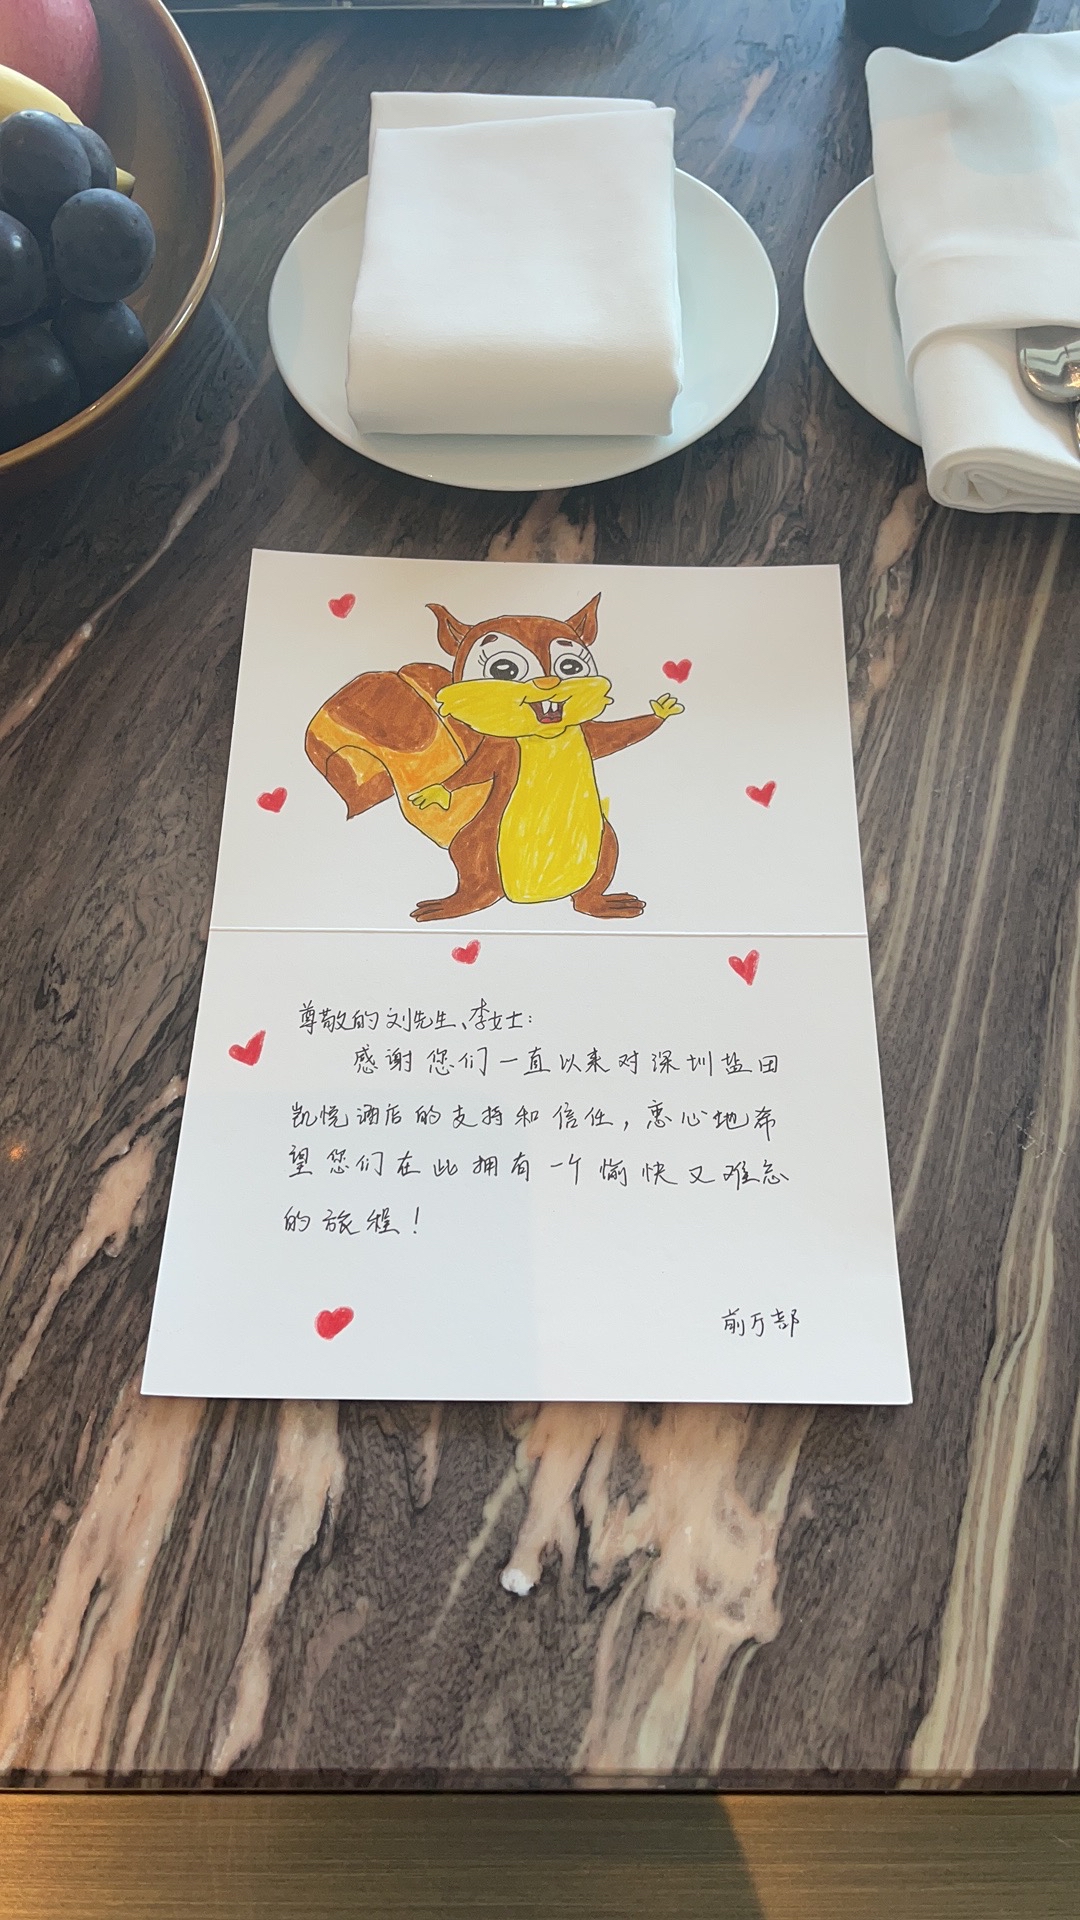 尊敬的刘先生、李女士：
感谢您们一直以来对深圳盐田
凯悦酒店的支持和信任，衷心地希
望您们在此拥有一个愉快又难忘
的旅程！
前厅部